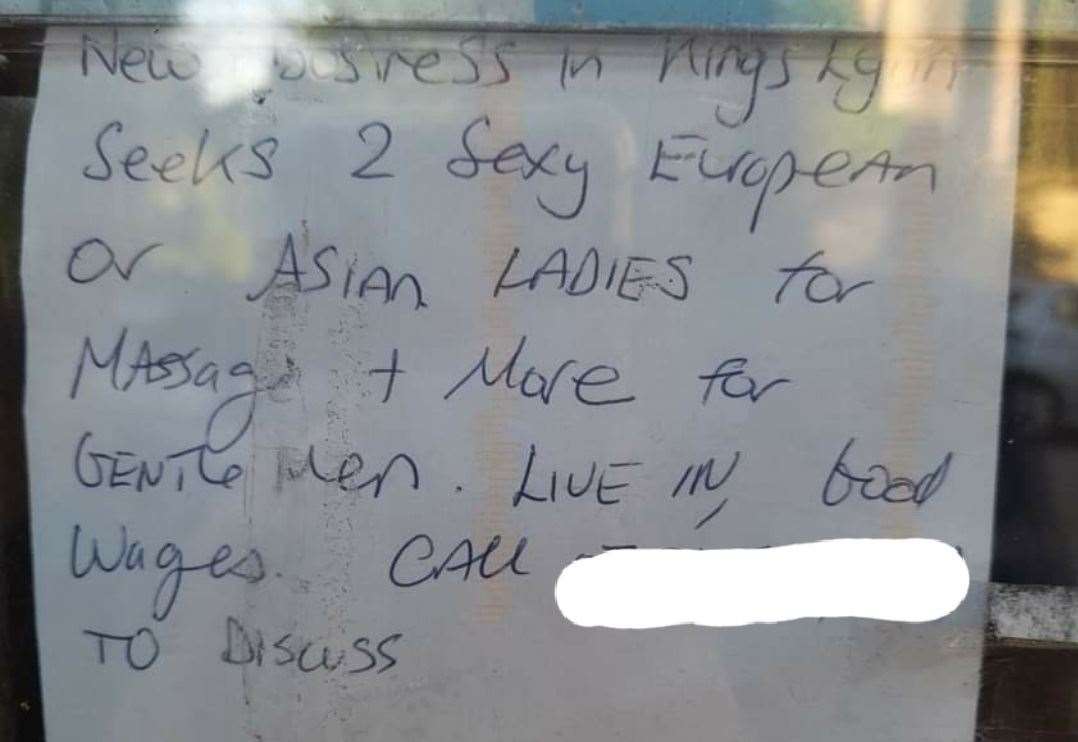 New business in Kings Lynn
Seeks 2 Sexy European
or ASIAn LADIES for
MAssage + More for
GENTle Men. LIVE IN, Good
Wages. CAll
TO DISCUSS